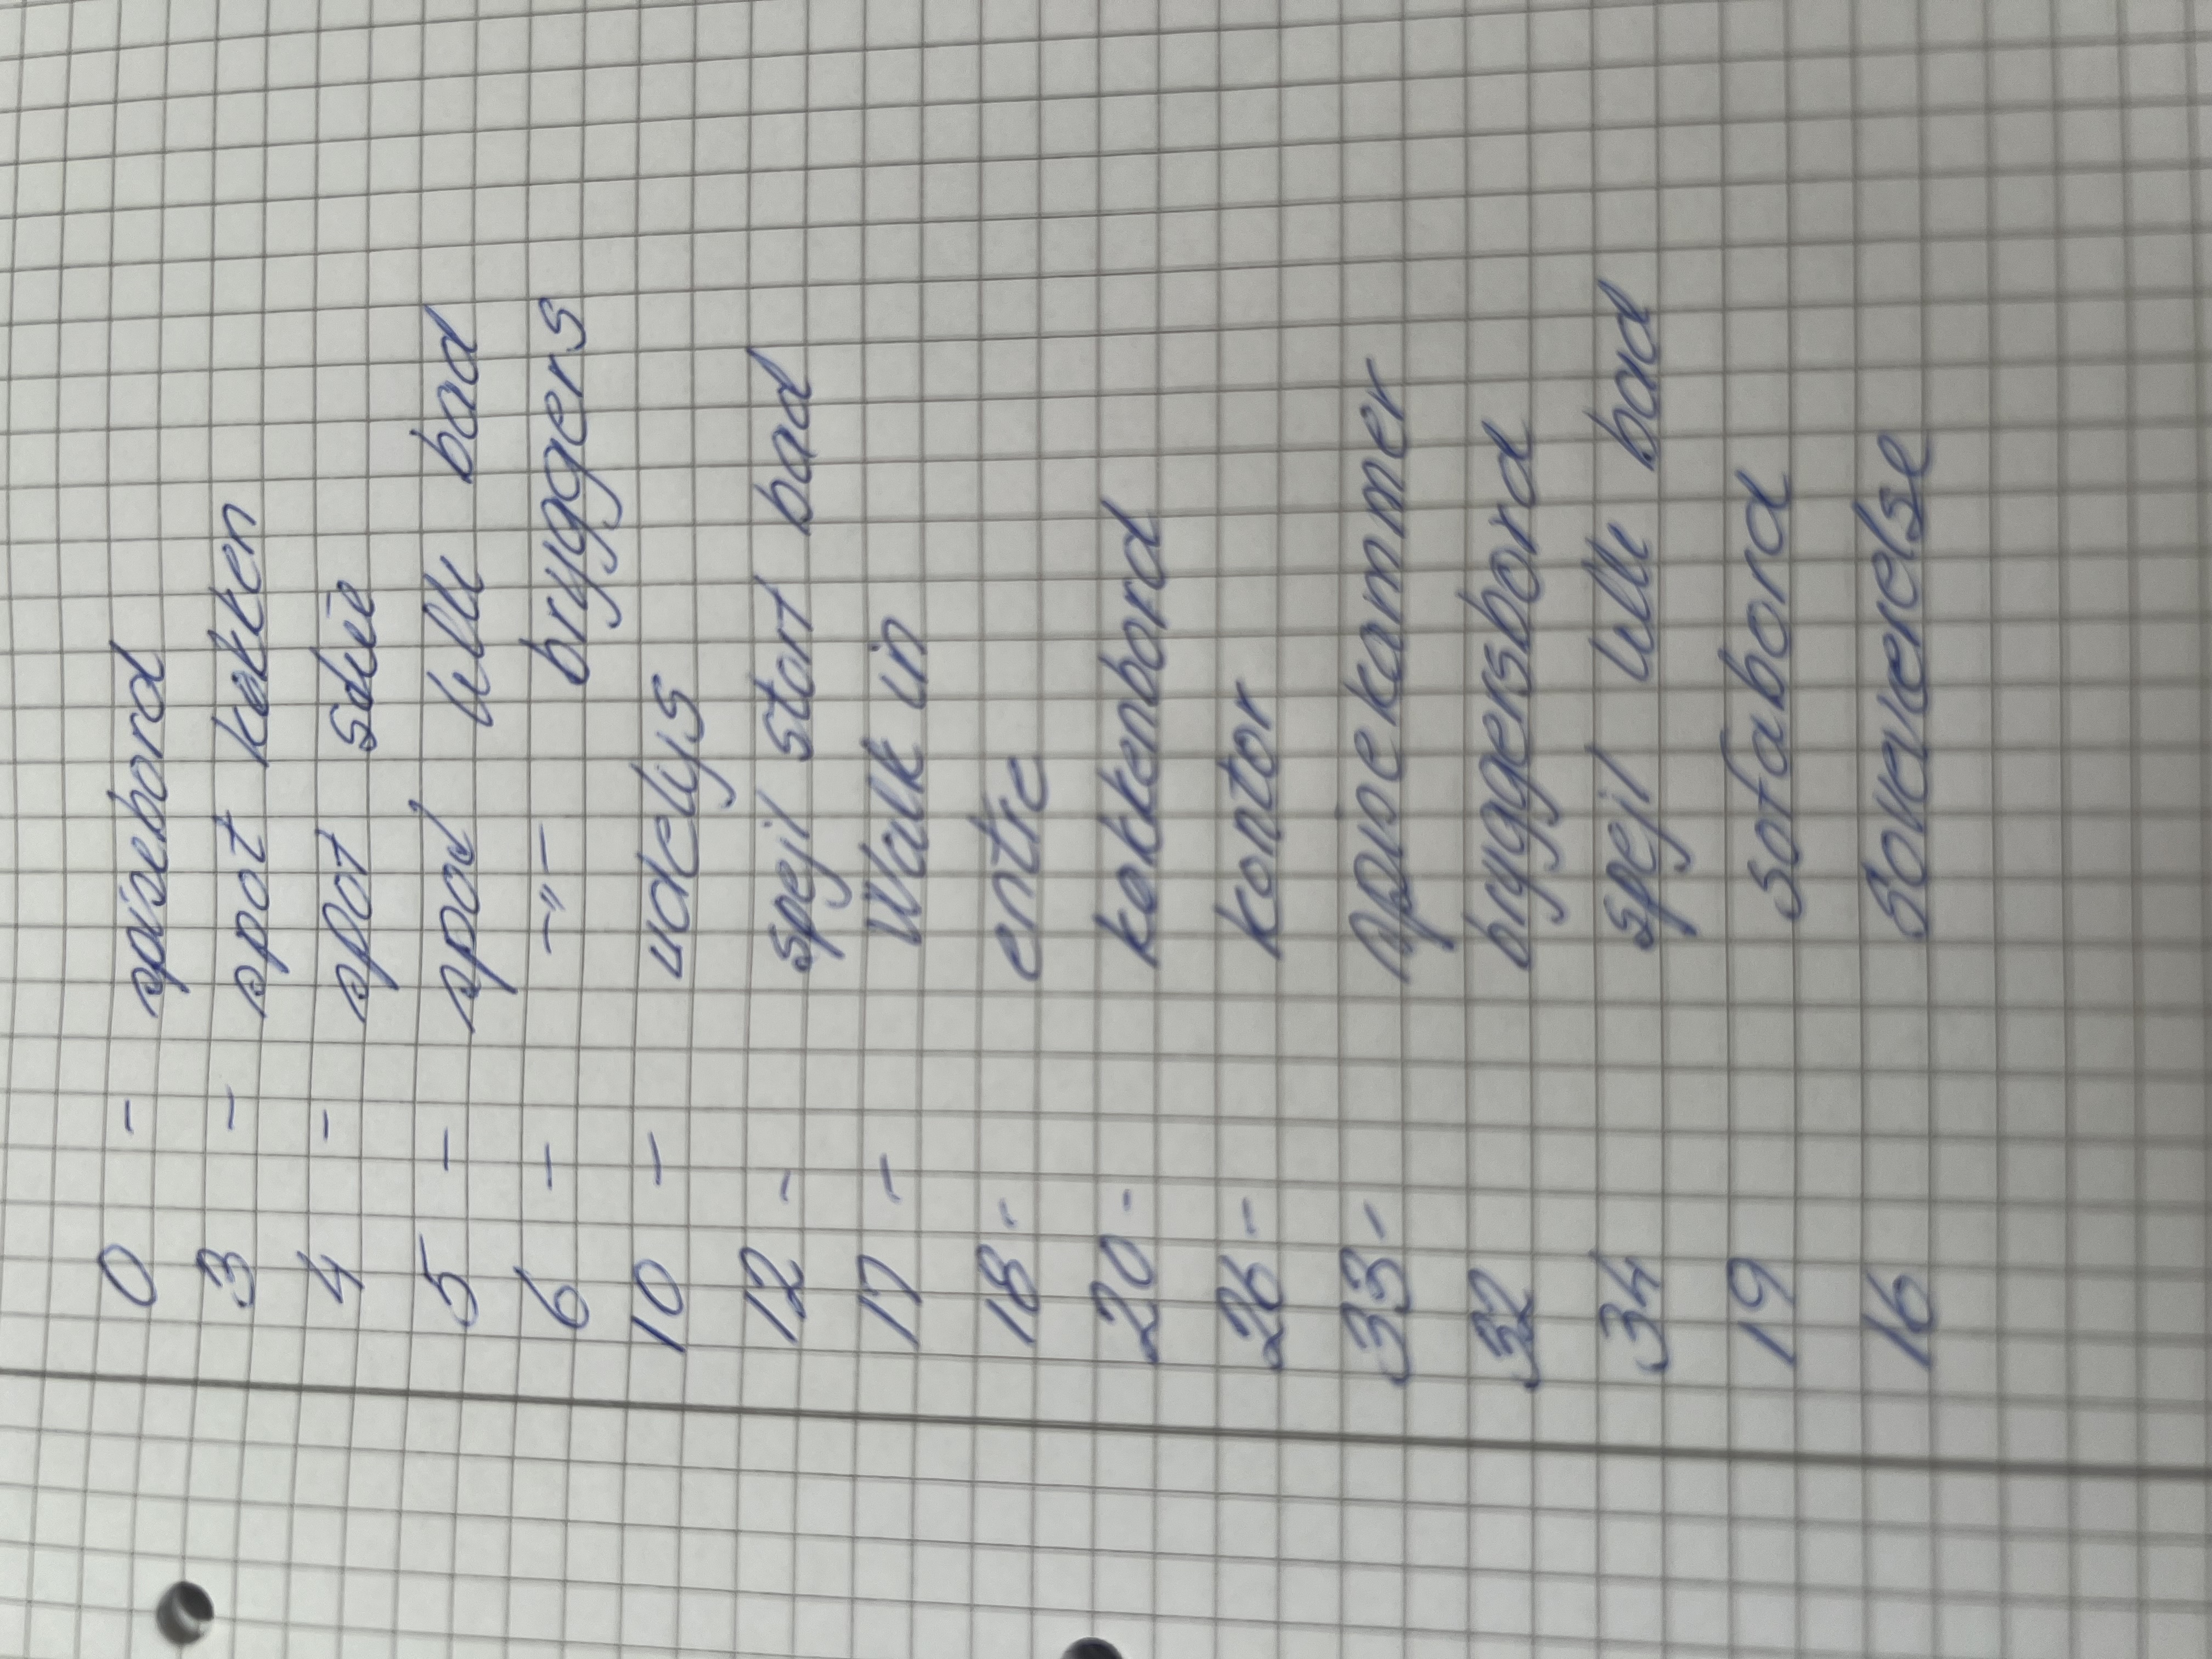 0 - spisebord
3 - spot køkken
4 - spot
5 - spot lille bad
6 - -"- bryggers
10 - udelys
12 - spejl stort bad
17 - Walk in
18 - entre
20 - køkkenbord
26 - kontor
33 - spisekammer
32 bryggersbord
34 spejl lille bad
19 sofabord
16 Soveværelse